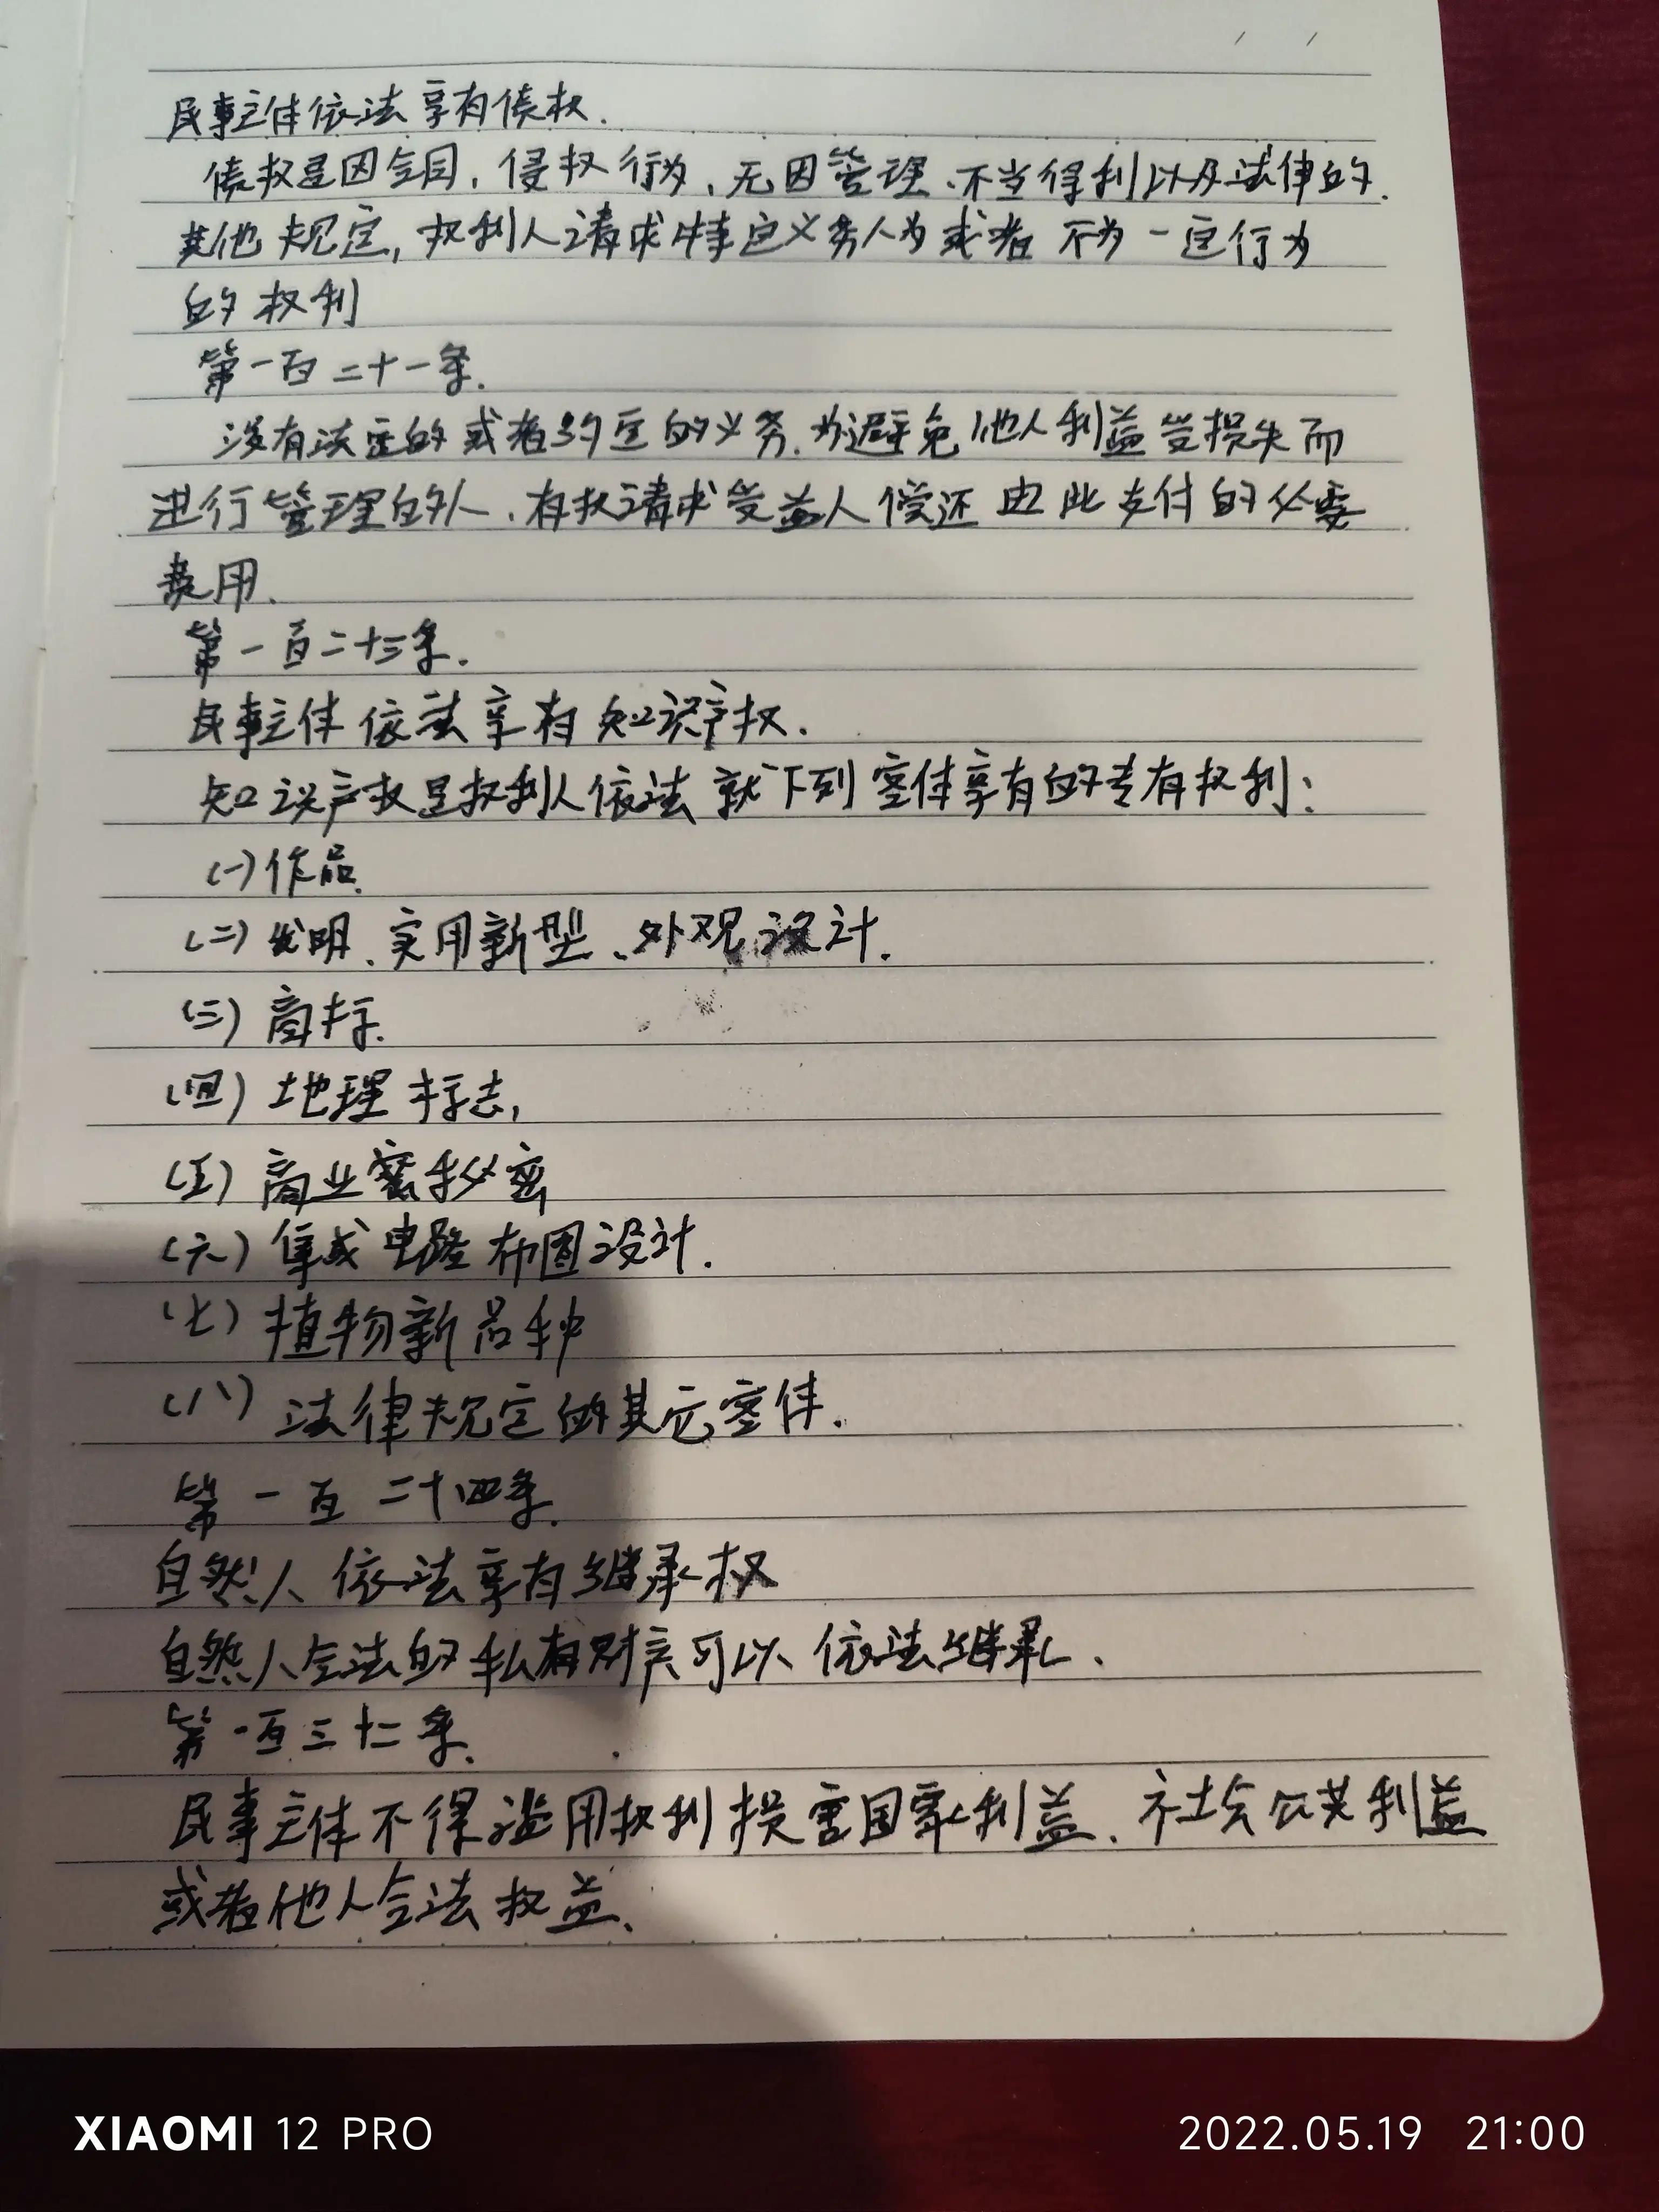 民事主体依法享有债权.
债权是因合同,侵权行为、无因管理、不当得利以及法律的
其他规定,权利人请求特定义务人为或者不为一定行为
的权利
第一百二十一条.
没有法定的或者约定的义务.为避免他人利益受损失而
进行管理的人、有权请求受益人偿还由此支付的必要
费用.
第一百二十三条.
民事主体依法享有知识产权.
知识产权是权利人依法就下列客体享有的专有权利:
(一)作品.
(二)发明、实用新型、外观设计.
(三)商标.
(四)地理标志,
(五)商业密秘密
(六)集成电路布图设计.
(七)植物新品种
(八)法律规定的其它客体.
第一百二十四条.
自然人依法享有继承权
自然人合法的私有财产可以依法继承、
第一百三十二条.
民事主体不得滥用权利损害国家利益、社会公共利益
或者他人合法权益、
XIAOMI 12 PRO
2022.05.19 21:00